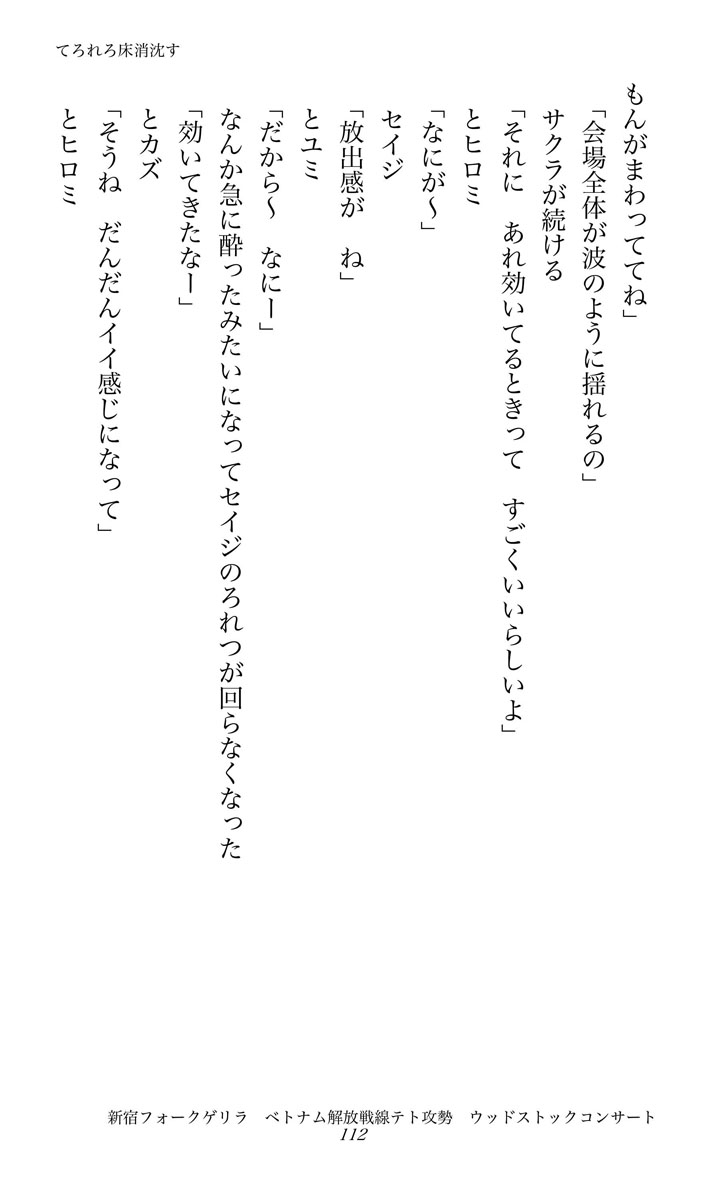 てろれろ床消沈す
もんがまわっててね」
「会場全体が波のように揺れるの」
サクラが続ける
「それに　あれ効いてるときって　すごくいいらしいよ」
とヒロミ
「なにが〜」
セイジ
「放出感が　ね」
とユミ
「だから〜　なにー」
なんか急に酔ったみたいになってセイジのろれつが回らなくなった
「効いてきたなー」
とカズ
「そうね　だんだんイイ感じになって」
とヒロミ
新宿フォークゲリラ　ベトナム解放戦線テト攻勢　ウッドストックコンサート
112